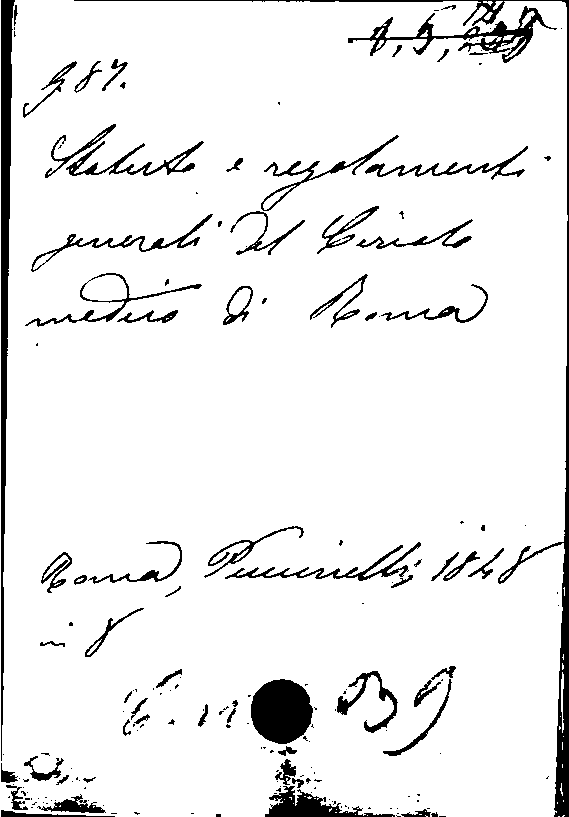 G. 87.
Statuto e regolamenti
generali del Circolo
medico di Roma
Roma, Piccinelli, 1848
in 8